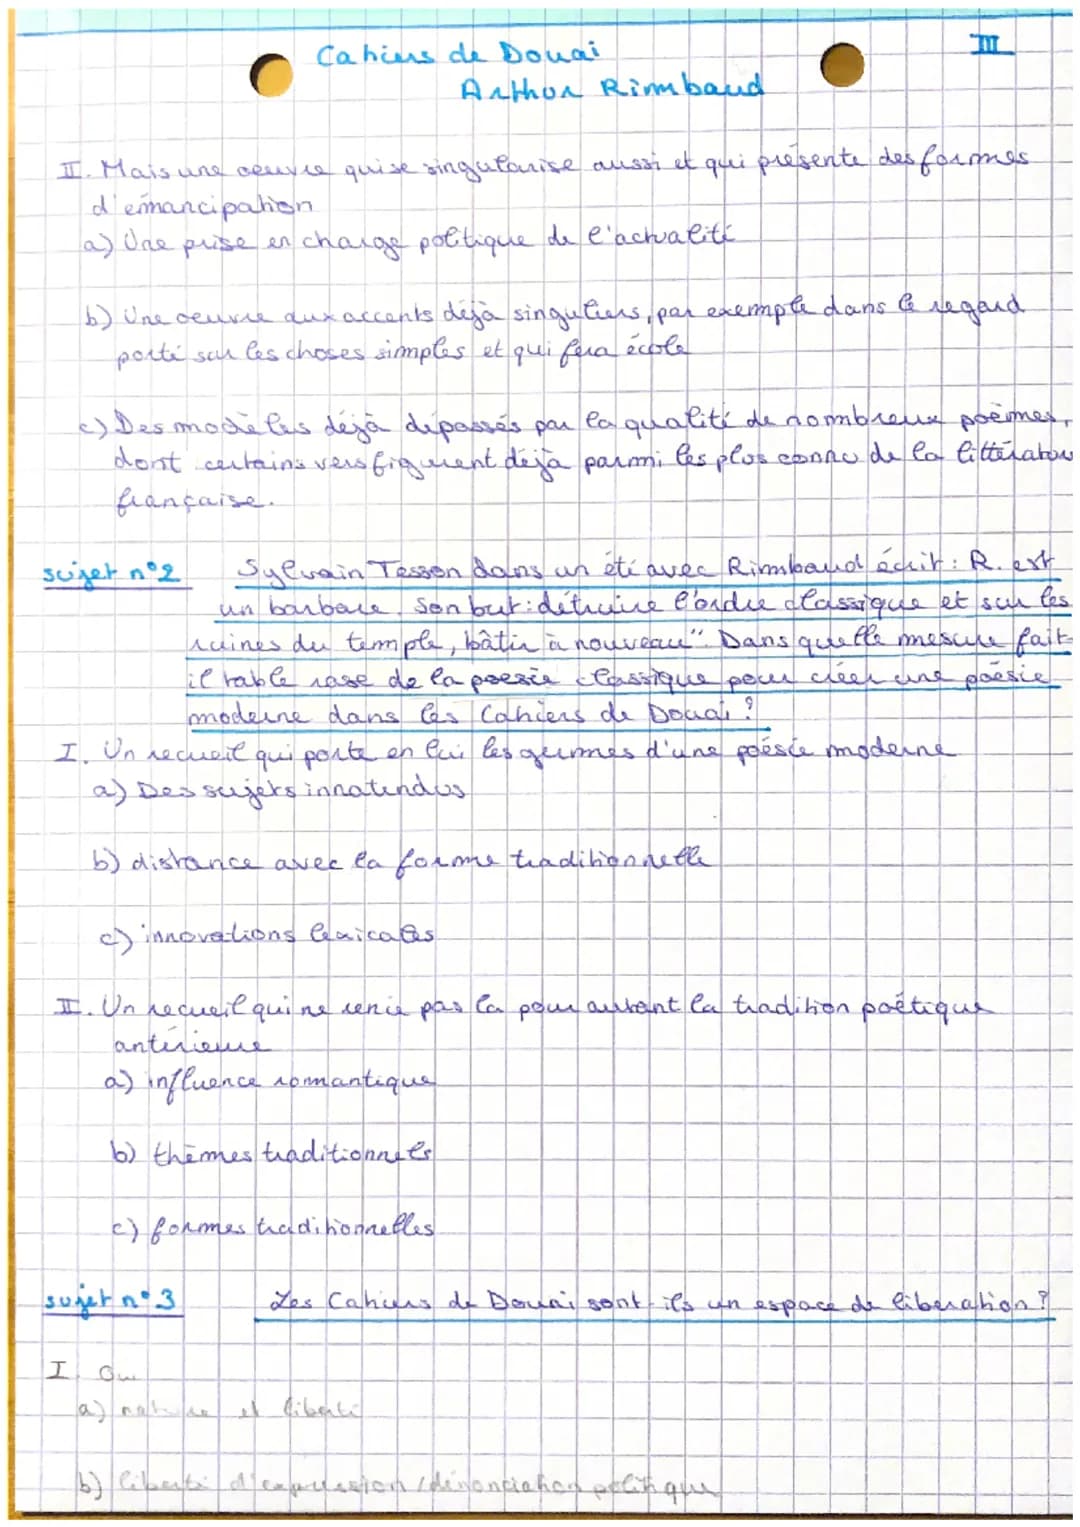 Cahiers de Douai
III
Arthur Rimbaud
II. Mais une oeuvre qui se singularise aussi et qui présente des formes
d'émancipation
a) Une prise en charge politique de l'actualité
b) Une oeuvre aux accents déjà singuliers, par exemple dans le regard
porté sur les choses simples et qui fera école
c) Des modèles déjà dépassés par la qualité de nombreux poèmes,
dont certains vers figurent déjà parmi les plus connu de la littératu
française.
sujet n°2 Sylvain Tesson dans un été avec Rimbaud écrit : R. est
un barbare. Son but : détruire l'ordre classique et sur les
ruines du temple, bâtir à nouveau". Dans quelle mesure fait-
il table rase de la poesie classique pour créer une poésie
moderne dans les Cahiers de Douai ?
I. Un recueil qui porte en lui les germes d'une poésie moderne
a) Des sujets innatendus
b) distance avec la forme traditionnelle
c) innovations lexicales
II. Un recueil qui ne renie pas la pour autant la tradition poétique
antérieure
a) influence romantique
b) thèmes traditionnels
c) formes traditionnelles
sujet n°3 Les Cahiers de Douai sont-ils un espace de liberation ?
I. Oui
a) nature et liberté
b) liberté d'expression / dénonciation politique